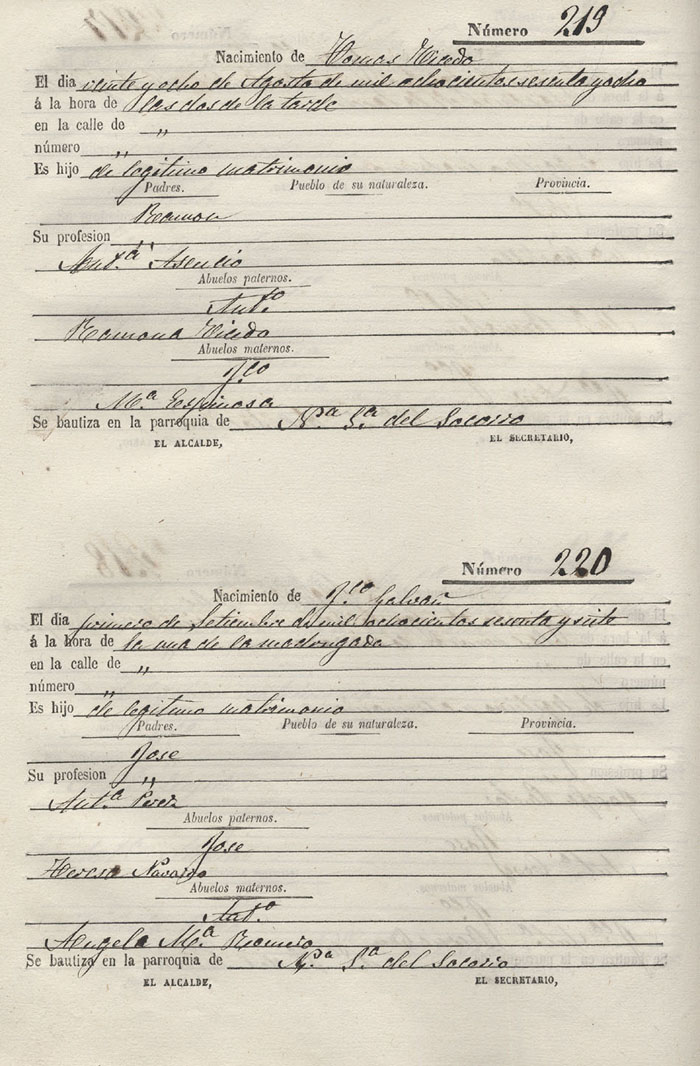 Número 219
Nacimiento de Tomas Vicedo
El dia veinte y ocho de Agosto de mil ochocientos sesenta y ocho
á la hora de las dos de la tarde
en la calle de "
número "
Es hijo de legitimo matrimonio
Padres. Pueblo de su naturaleza. Provincia.
Ramon
Su profesion "
Ant.ª Asencio
Abuelos paternos.
Ant.º
Ramona Vicedo
Abuelos maternos.
Fco
M.ª Espinosa
Se bautiza en la parroquia de N.ª S.ª del Socorro
EL ALCALDE, EL SECRETARIO,
Número 220
Nacimiento de F.co Galvañ
El dia primero de Setiembre de mil ochocientos sesenta y siete
á la hora de la una de la madrugada
en la calle de "
número "
Es hijo de legitimo matrimonio
Padres. Pueblo de su naturaleza. Provincia.
Jose
Su profesion "
Ant.ª Perez
Abuelos paternos.
Jose
Teresa Navarro
Abuelos maternos.
Ant.º
Angela M.ª Romero
Se bautiza en la parroquia de N.ª S.ª del Socorro
EL ALCALDE, EL SECRETARIO,